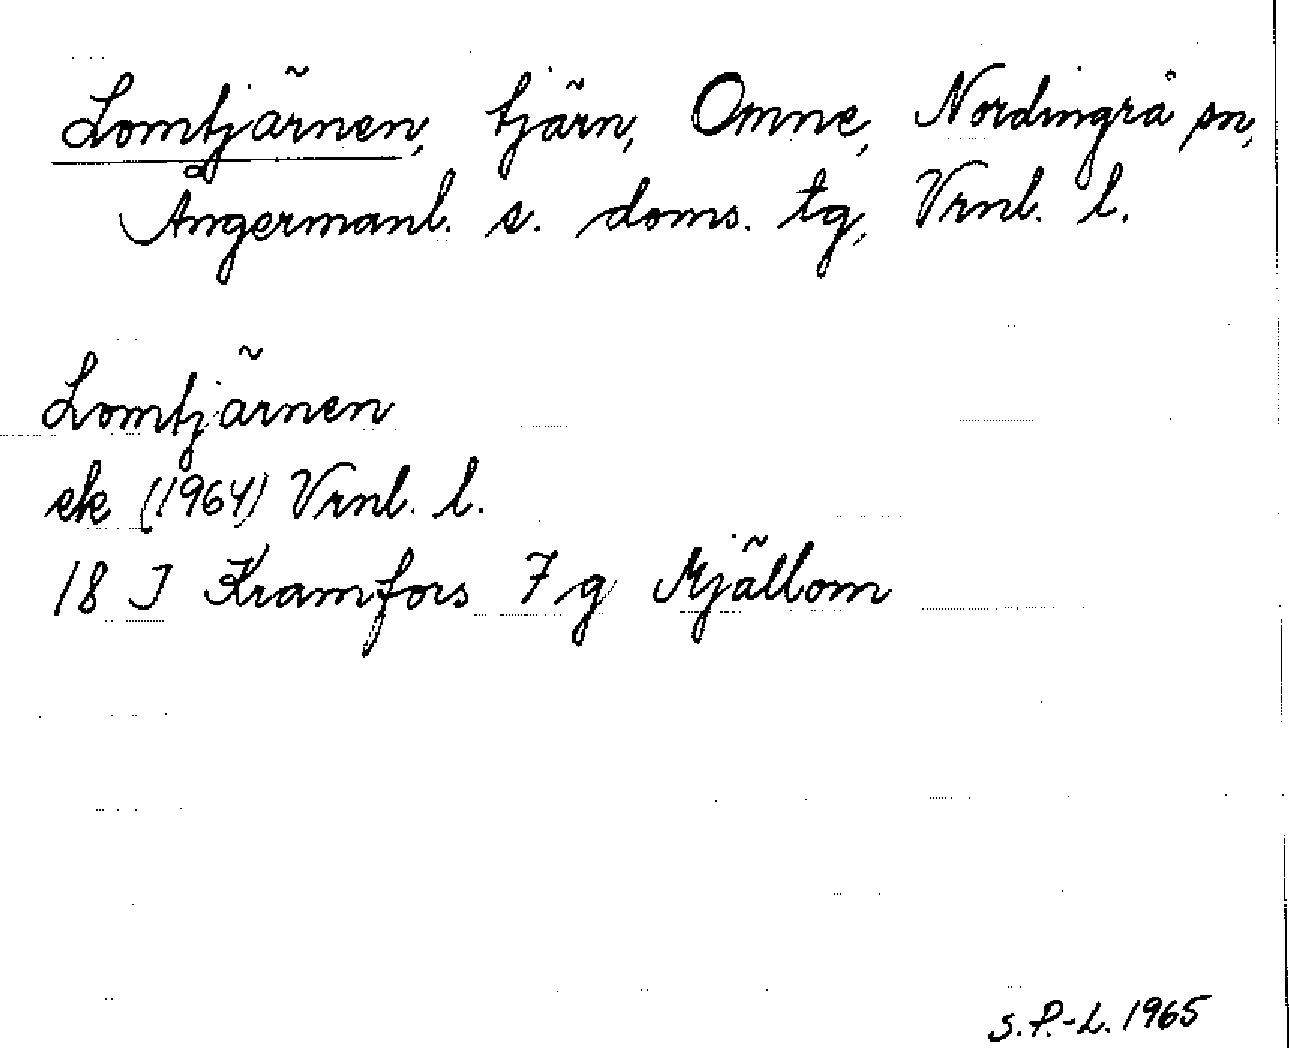 Lomtjärnen, tjärn, Omne, Nordingrå sn,
Ångermanl. s. doms. tg, Vrnl. l.
Lomtjärnen
ek (1964) Vrnl. l.
18 J Kramfors 7 g Mjällom
S.P.-L. 1965